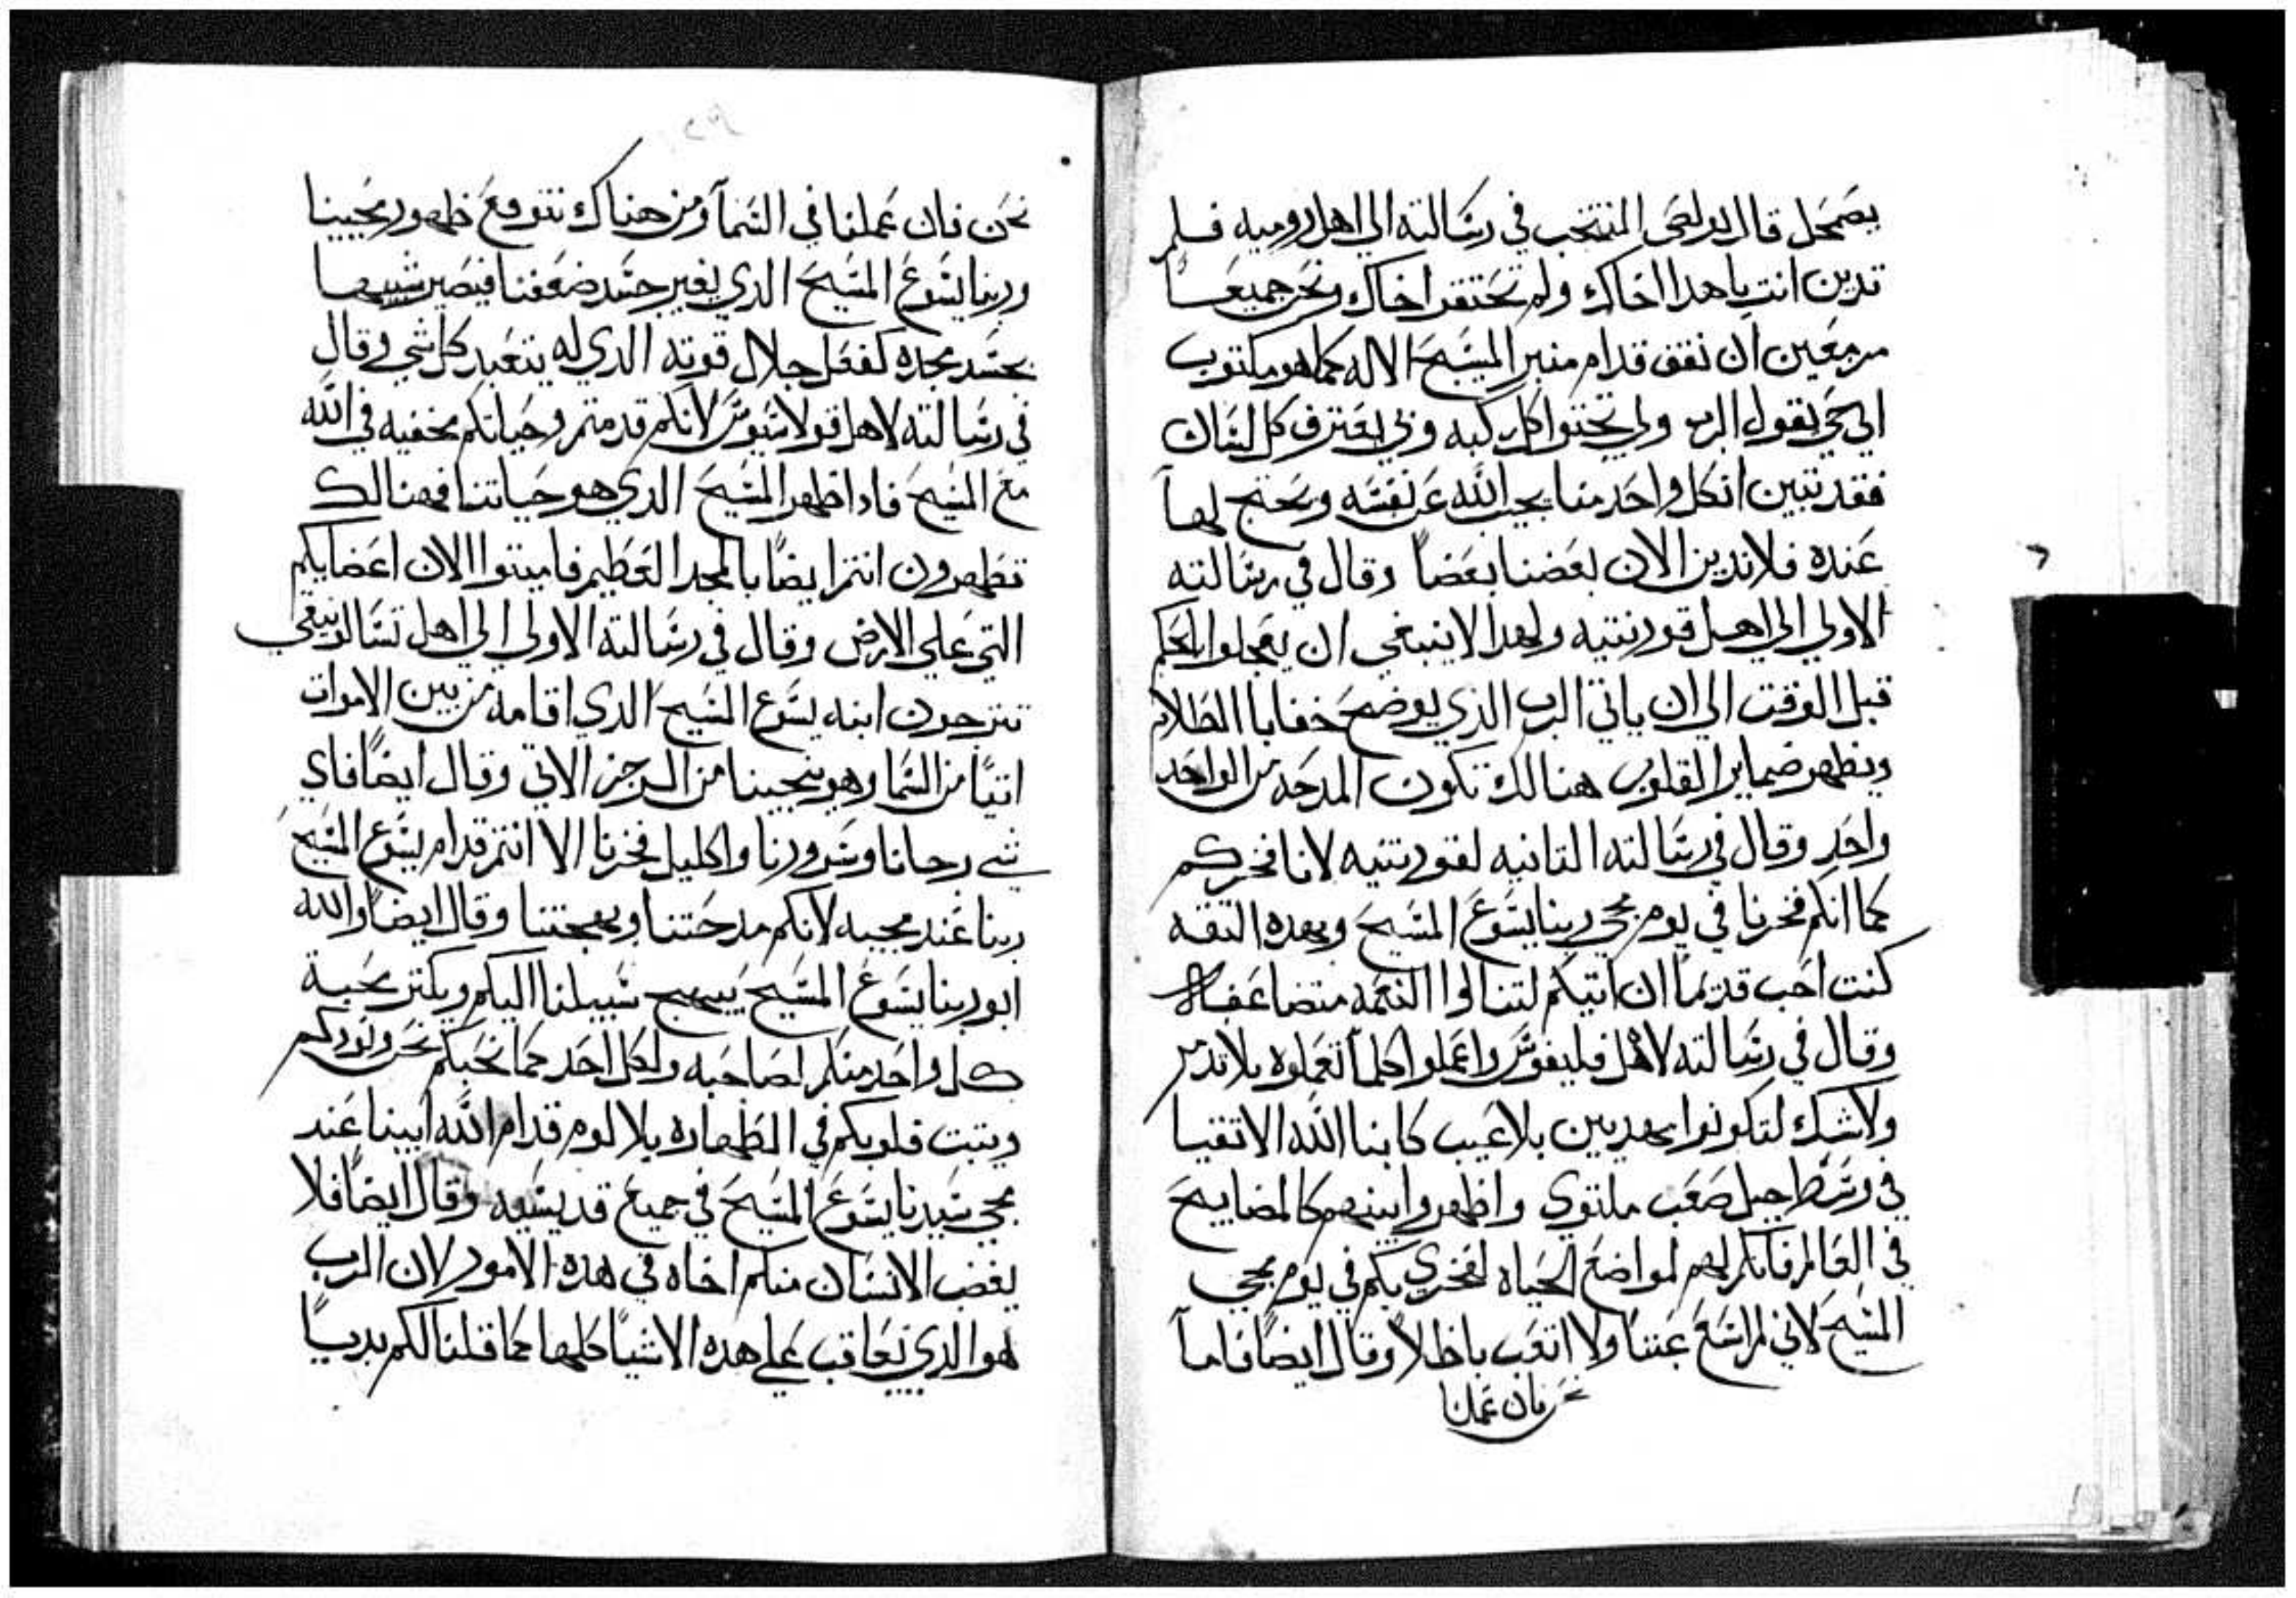 يضمحل قال بولص المنتخب في رسالته الي اهل روميه فلم
تدين انت يا هدا اخاك ولم تحتقر اخاك ونحن جميعا
مزمعين ان نقف قدام منبر المسيح الاله كما هو مكتوب
اني حي يقول الرب ولي تجتوا كل ركبه ولي يعترف كل لسان
فقد تبين ان كل واحد منا يجيب الله عن نفسه ويحتج لها
عنده فلا ندين الان بعضنا بعضا وقال في رسالته
الاولي الي اهل قورنتيه ولهدا لا ينبغي ان يعجلوا بالحكم
قبل الوقت الي ان ياتي الرب الذي يوضح خفايا الظلام
ويظهر ضماير القلوب هنالك تكون المدحه من الواحد
واحد وقال في رسالته التانيه لقورنتيه لانا فخركم
كما انكم فخرنا في يوم مجي ربنا يسوع المسيح وبهده التقه
كنت احب قديما ان اتيكم لتنالوا النعمه متضاعفا
وقال في رسالته لاهل فيليفوس واعملوا كلما تعملوه بلا تدمر
ولا شك لتكونوا مهديين بلا عيب كابنا الله الاتقيا
في وسط جيل صعب ملتوي واظهروا بينهم كالمصابيح
في العالم فانكم لهم لمواضع الحياه لفخري بكم في يوم مجي
المسيح لاني لم اسع عبتا ولا اتعب باطلا وقال ايضا فاما
نحن فان عملنا
نحن فان عملنا في السمآ ومن هناك نتوقع ظهور مجيينا
وربنا يسوع المسيح الدي يغير جسد ضعفنا فيصير شبيها
بجسد مجده كفعل جلال قوته الدي له يتعبد كل شي وقال
في رسالته لاهل قولاسيوس لانكم قد متم وحياتكم مخفيه في الله
مع المسيح فادا ظهر المسيح الدي هو حياتنا فهنالك
تظهرون انتم ايضا بالمجد العظيم فاميتوا الان اعضايكم
التي علي الارض وقال في رسالته الاولي الي اهل تسالونيقي
تترجون ابنه يسوع المسيح الدي اقامه من بين الاموات
اتيا من السما وهو ينجينا من الرجز الاتي وقال ايضا فاي
شي رجانا وسرورنا واكليل فخرنا الا انتم قدام يسوع المسيح
ربنا عند مجيه لانكم مدحتنا وبهجتنا وقال ايضا والله
ابو ربنا يسوع المسيح يبهج سبيلنا اليكم ويكتر محبة
كل واحد منكم لصاحبه ولكل احد كما نحبكم نحن ونودكم
ويتبت قلوبكم في الطهاره بلا لوم قدام الله ابينا عند
مجي سيدنا يسوع المسيح في جميع قديسيه وقال ايضا فلا
يغضب الانسان منكم اخاه في هده الامور لان الرب
هو الدي يعاقب علي هده الاشيا كلها كما قلنا لكم بديا